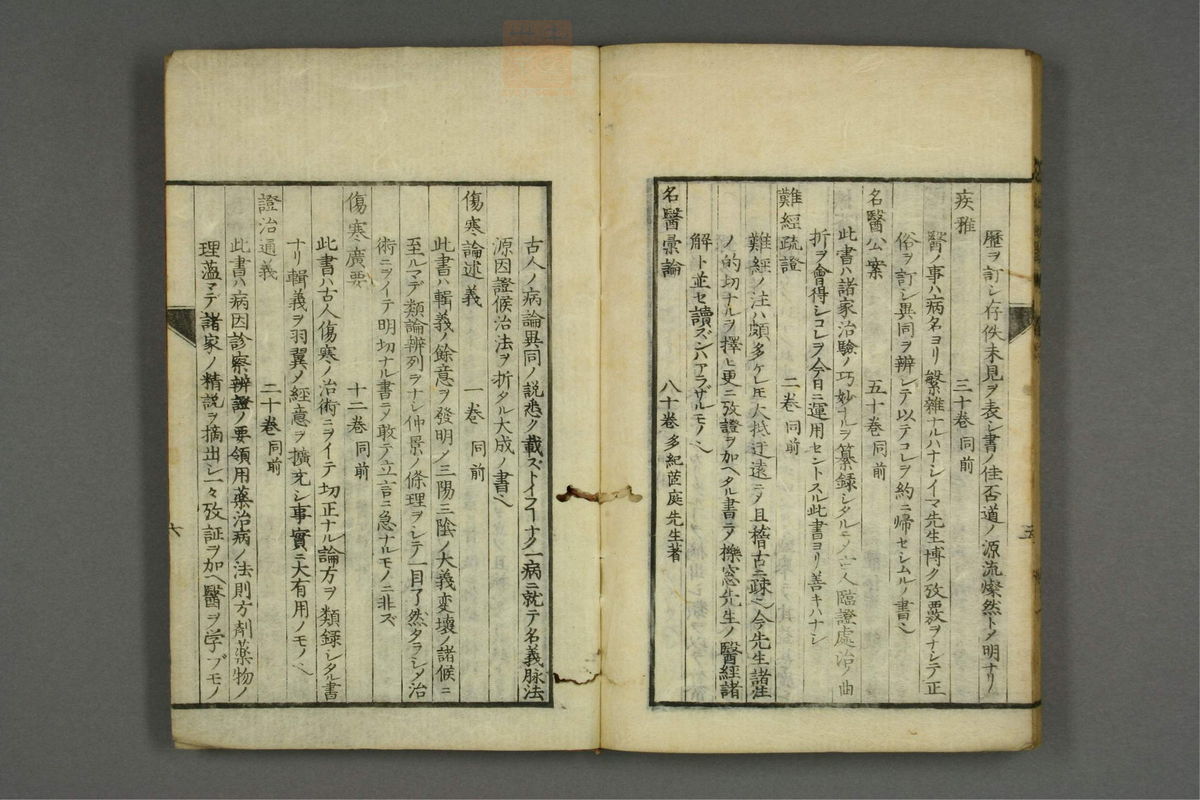 歴ヲ訂シ存佚未見ヲ表シ書ノ佳否道ノ源流燦然トノ明ナリ
疾雅 三十巻 同前
醫ノ事ハ病名ヨリ繁雜ナルハナシイマ先生博ク攷覈ヲナシテ正
俗ヲ訂シ異同ヲ辨シテ以テコレヲ約ニ帰セシムルノ書ヘ
名醫公案 五十巻 同前
此書ハ諸家治驗ノ巧妙ナルヲ纂録シタルモノ古人臨證處治ノ曲
折ヲ會得シコレヲ今日ニ運用セントスル此書ヨリ善キハナシ
難經疏證 二巻 同前
難經ノ注ハ頗多ケレ𪜈大抵迂遠ニノ且稽古ニ疎ヘ今先生諸注
ノ的切ナルヲ擇ヒ更ニ攷證ヲ加ヘタル書ニテ櫟窓先生ノ醫經諸
解ト並セ讀ズンバアラザルモノヘ
名醫彙論 八十巻 多紀茝庭先生著
古人ノ病論異同ノ説悉ク載ズトイフヿナク一病ニ就テ名義脉法
源因證候治法ヲ折タル大成ノ書ヘ
傷寒論述義 一巻 同前
此書ハ輯義ノ餘意ヲ發明ノ三陽三陰ノ大義変壊ノ諸候ニ
至ルマデ類論辨列ヲナシ仲景ノ條理ヲシテ一目了然タラシメ治
術ニヲイテ明切ナル書ニノ敢テ立言ニ急ナルモノニ非ズ
傷寒廣要 十二巻 同前
此書ハ古人傷寒ノ治術ニヲイテノ切正ナル論方ヲ類録シタル書
ナリ輯義ヲ羽翼ノ經意ヲ擴充シ事實ニ大有用ノモノヘ
證治通義 二十巻 同前
此書ハ病因診察辨證ノ要領用薬治病ノ法則方剤薬物ノ
理薀マデ諸家ノ精説ヲ摘出シ一々攷証ヲ加ヘ醫ヲ学ブモノ
五
六